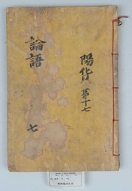 論語
七
陽貨 第十七